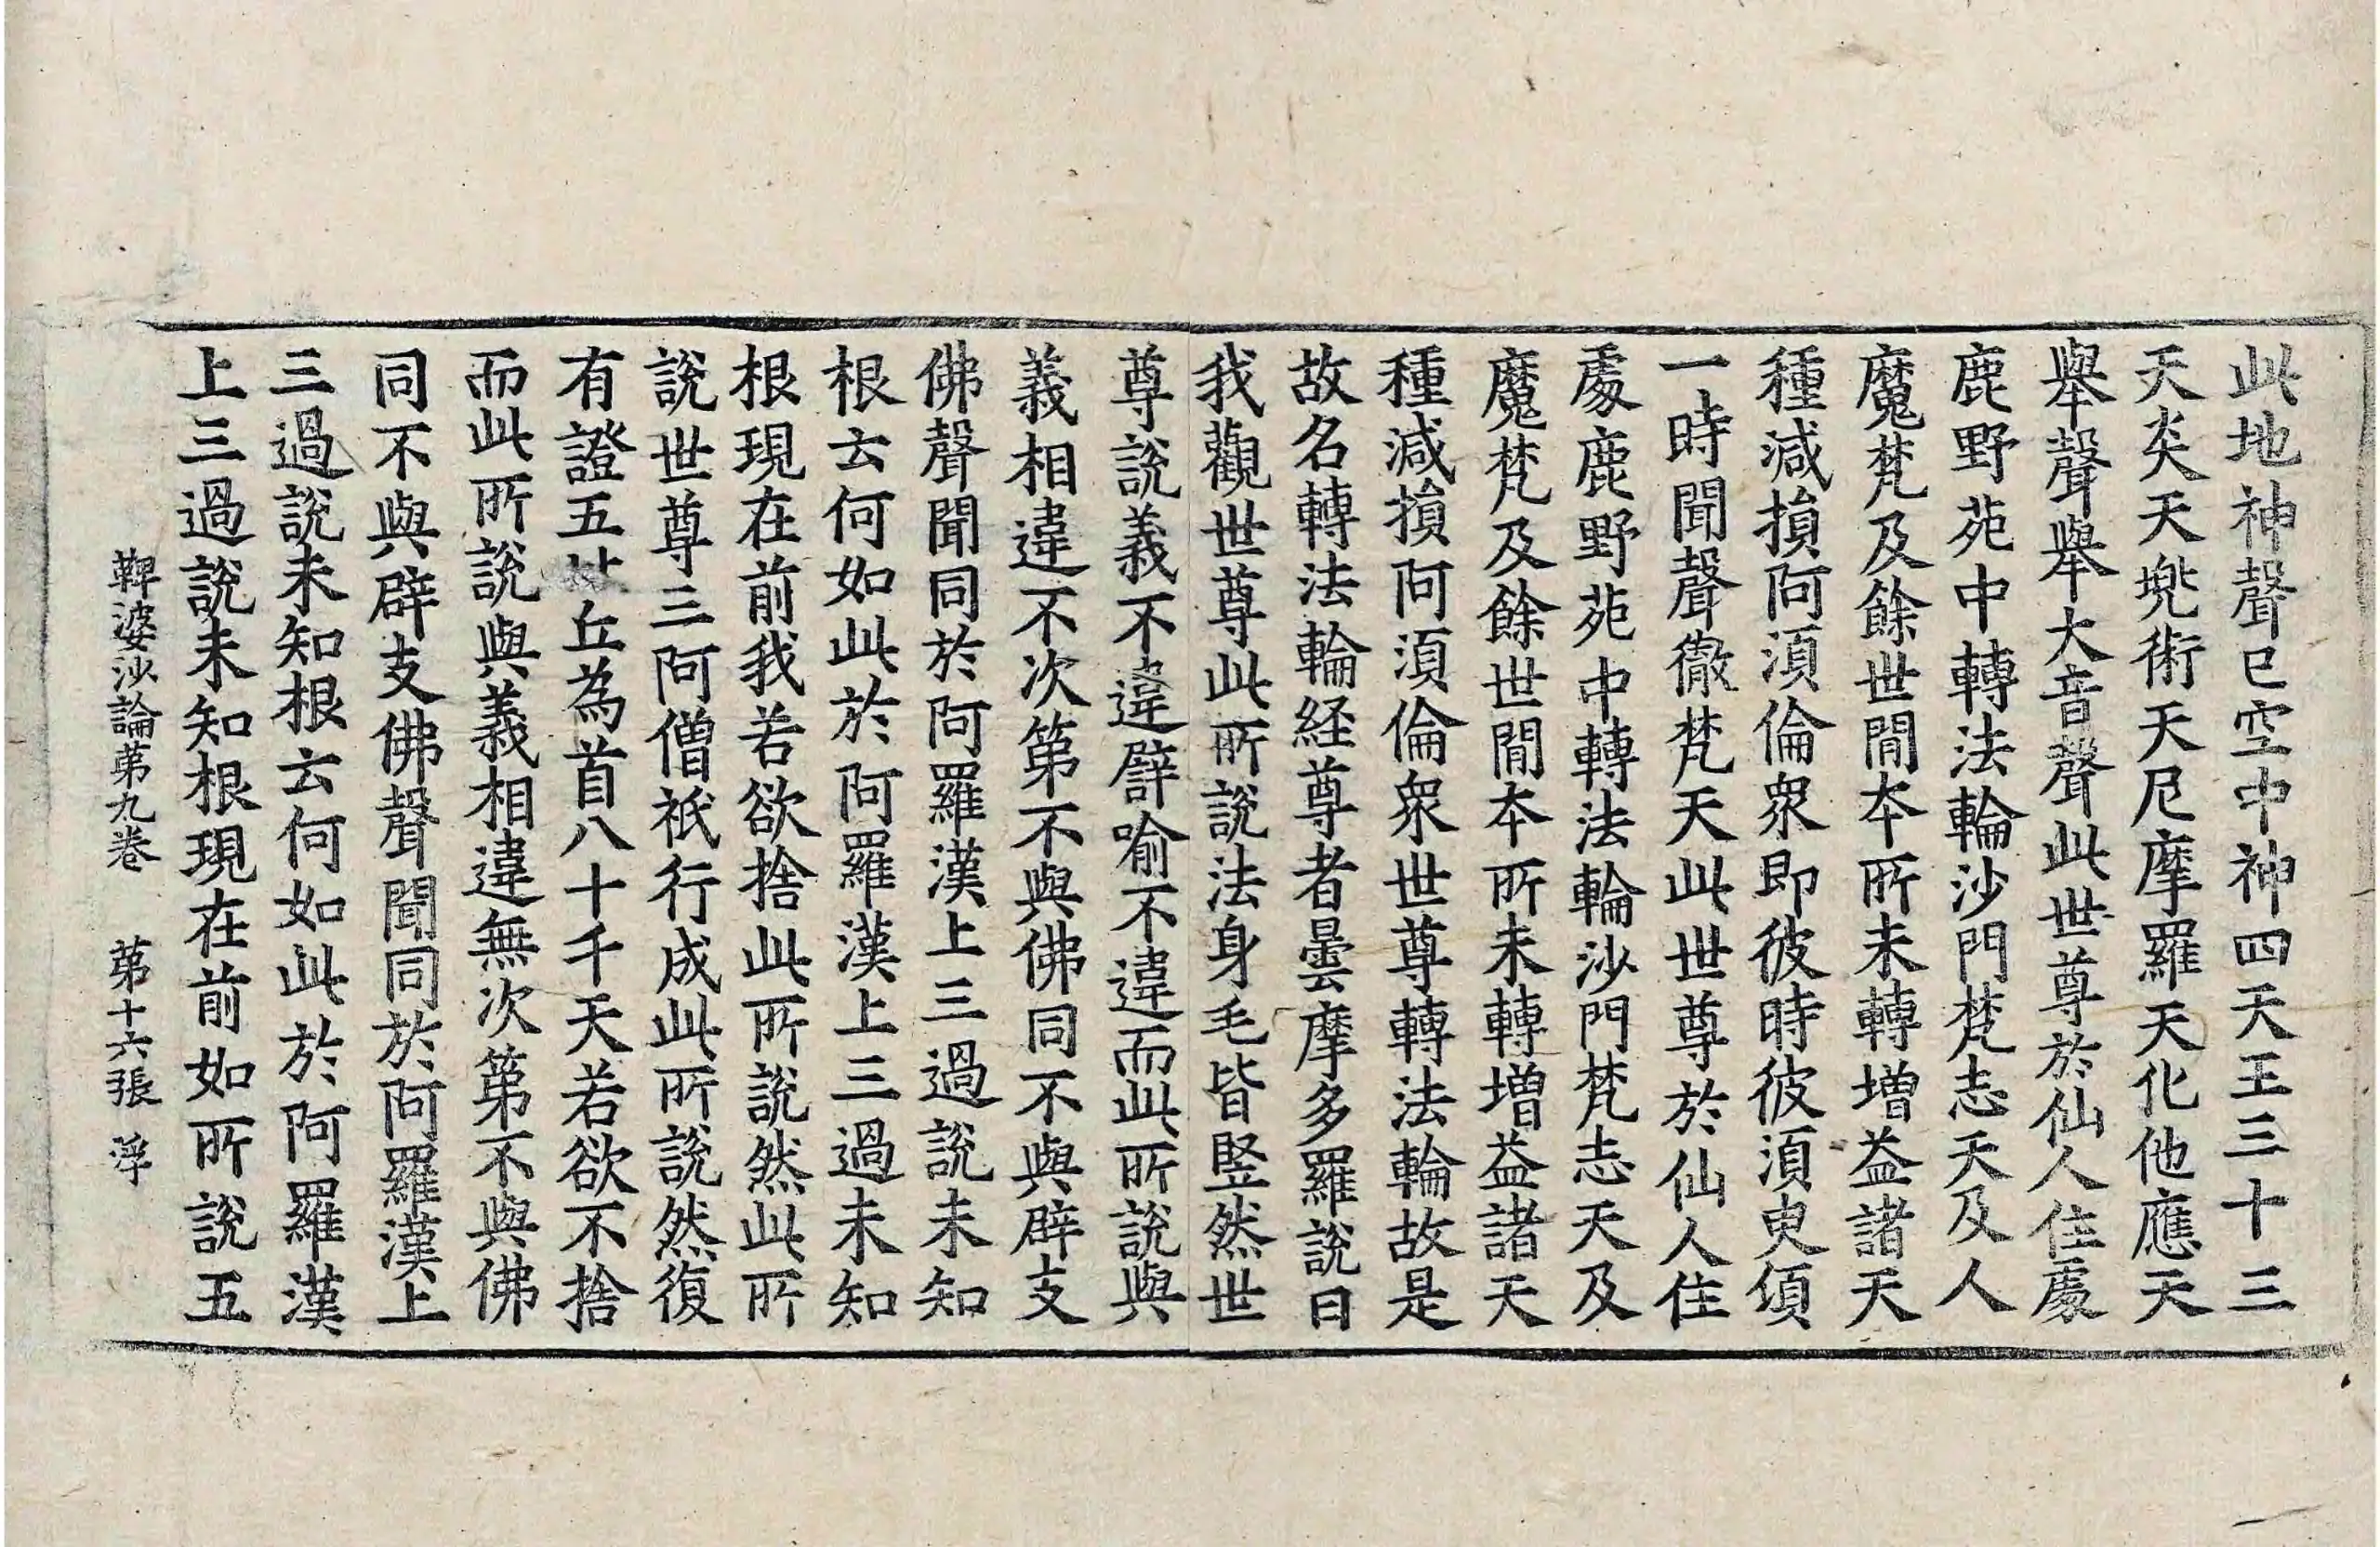 此地神聲已空中神四天王三十三
天炎天兠術天尼摩羅天化他應天
舉聲舉大音聲此世尊於仙人住處
鹿野苑中轉法輪沙門梵志天及人
魔梵及餘世閒本所未轉增益諸天
種減損阿須倫衆即彼時彼須臾頃
一時聞聲徹梵天此世尊於仙人住
處鹿野苑中轉法輪沙門梵志天及
魔梵及餘世閒本所未轉增益諸天
種減損阿須倫衆世尊轉法輪故是
故名轉法輪経尊者曇摩多羅說曰
我觀世尊此所說法身毛皆竪然世
尊說義不違譬喻不違而此所說與
義相違不次第不與佛同不與辟支
佛聲聞同於阿羅漢上三過說未知
根云何如此於阿羅漢上三過未知
根現在前我若欲捨此所說然此所
說世尊三阿僧祇行成此所說然復
有證五丘為首八十千天若欲不捨
而此所說與義相違無次第不與佛
同不與辟支佛聲聞同於阿羅漢上
三過說未知根云何如此於阿羅漢
上三過說未知根現在前如所說五
鞞婆沙論第九卷 第十六張 浮